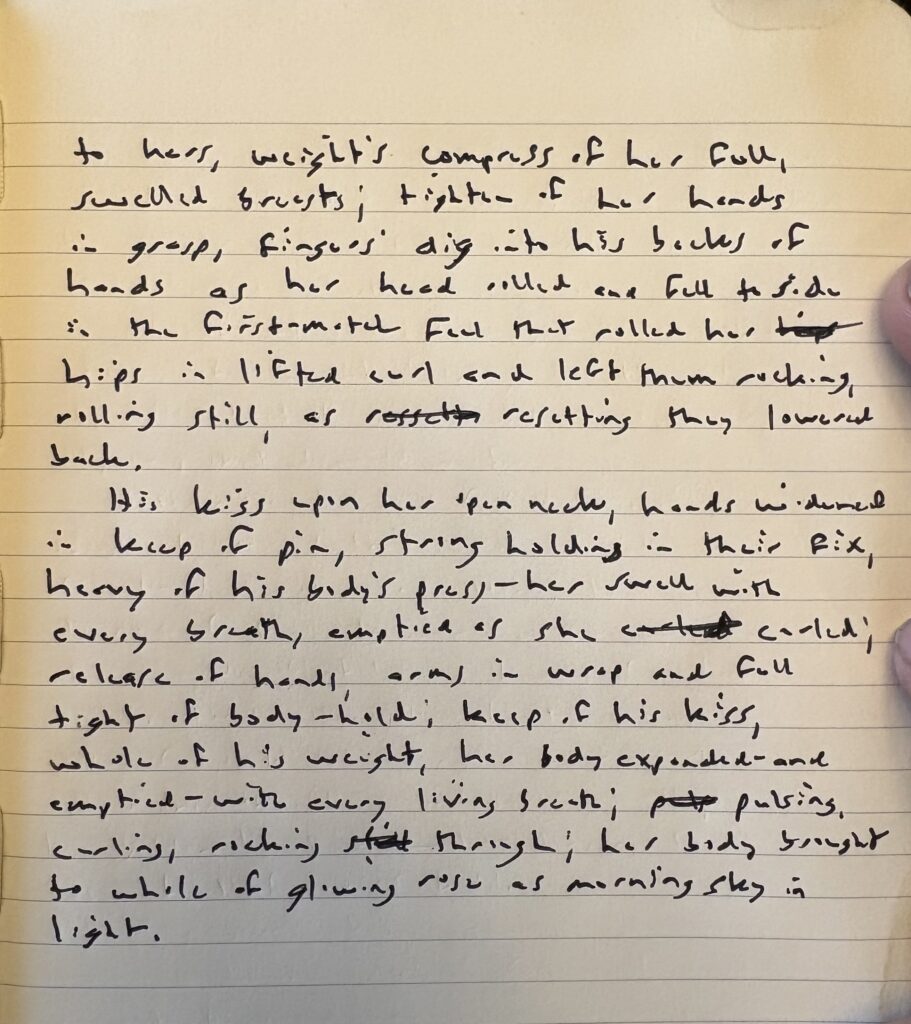 to hers, weight's compress of her full,
swelled breasts; tighten of her hands
in grasp, fingers' dig into his backs of
hands as her head rolled and fell to side
in the first-match feel that rolled her
hips in lifted curl and left them rocking,
rolling still, as resetting they lowered
back.
His kiss upon her open neck, hands widened
in keep of pin, strong holding in their fix,
heavy of his body's press—her swell with
every breath, emptied as she curled;
release of hands, arms in wrap and full
tight of body-hold; keep of his kiss,
whole of his weight, her body expanded—and
emptied—with every living breath; pulsing,
curling, rocking through; her body brought
to whole of glowing rose as morning sky in
light.